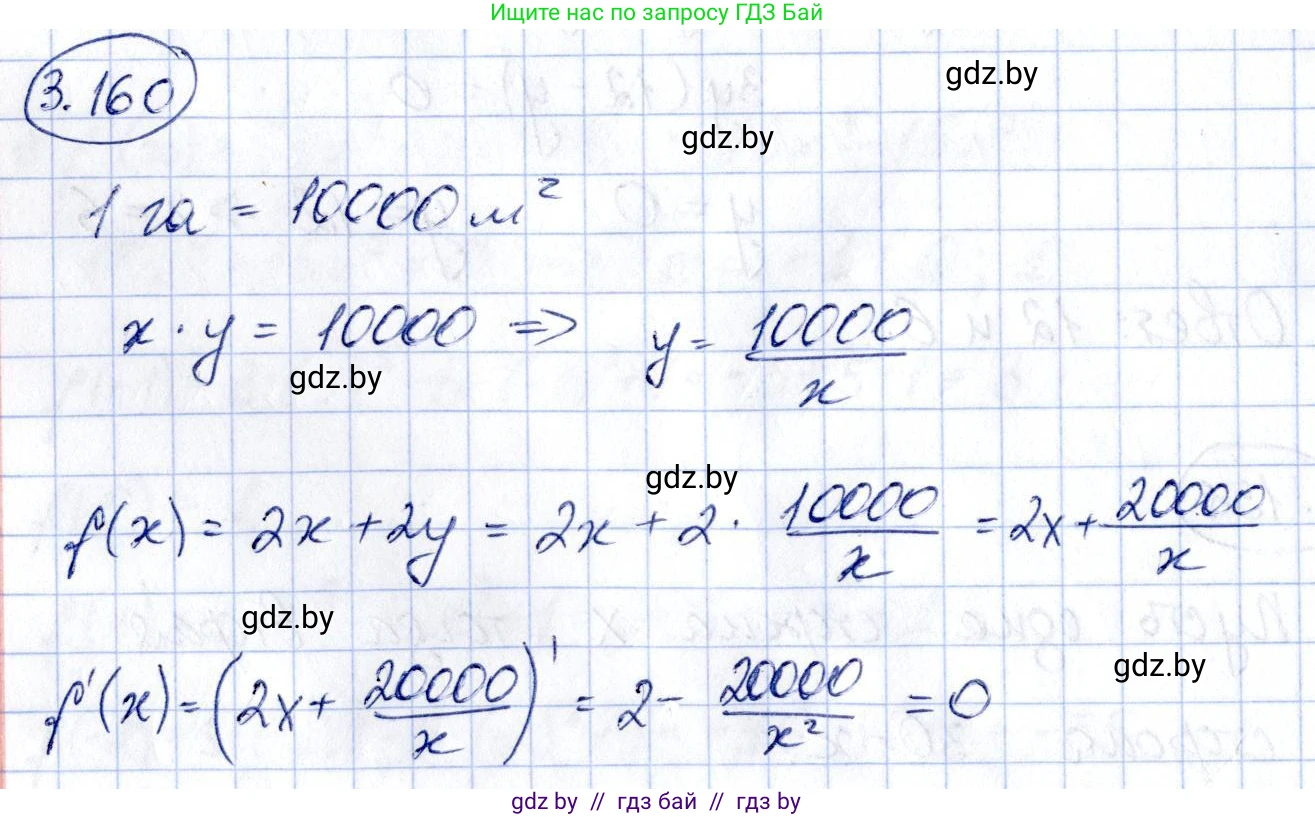 Ищите нас по запросу ГДЗ Бай
3.160
gdz.by
gdz.by
1 га = 10000 м²
x · y = 10000 => y = 10000/x
gdz.by
gdz.by
f(x) = 2x + 2y = 2x + 2 · 10000/x = 2x + 20000/x
gdz.by
gdz.by
f'(x) = (2x + 20000/x)' = 2 - 20000/x² = 0
gdz by // гдз бай // гдз by